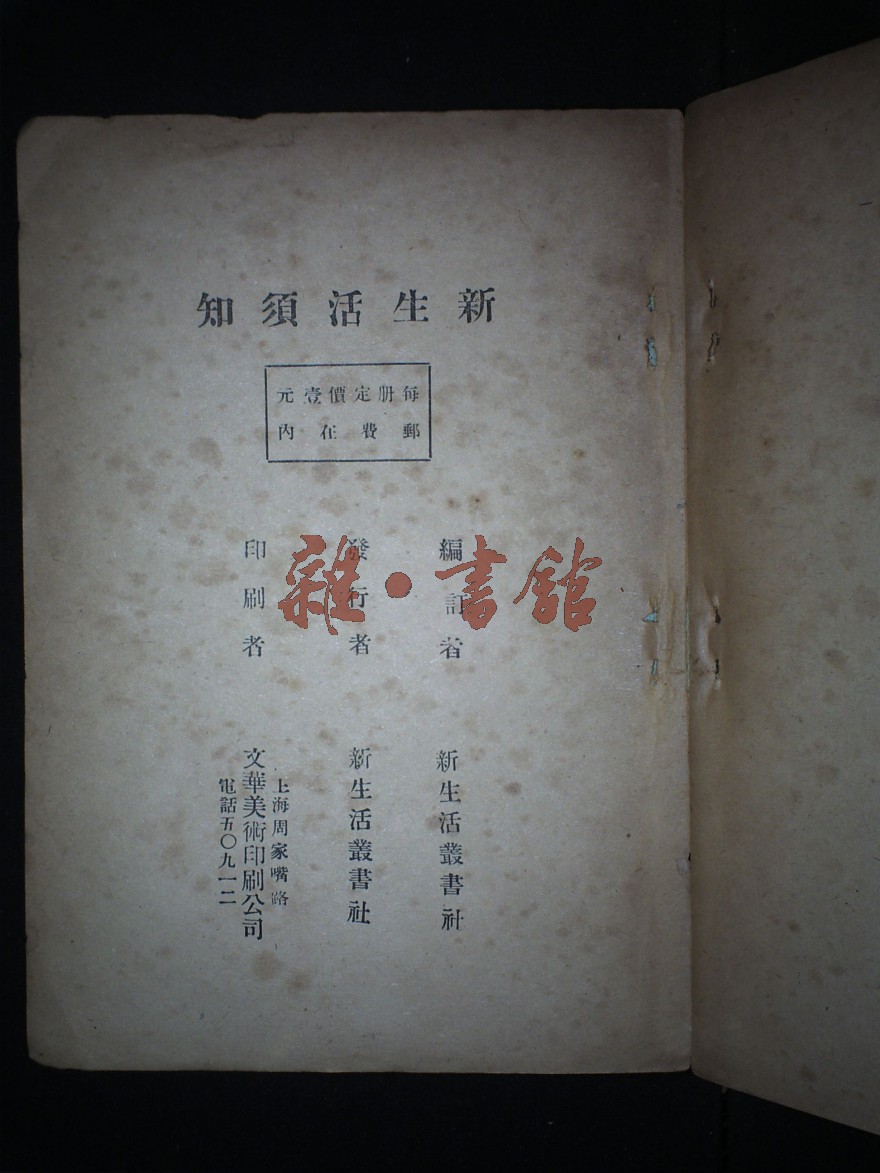 新生活須知
每册定價壹元
郵費在內
編訂者 新生活叢書社
發行者 新生活叢書社
印刷者 文華美術印刷公司
上海周家嘴路
電話五〇九一二
雜·書館